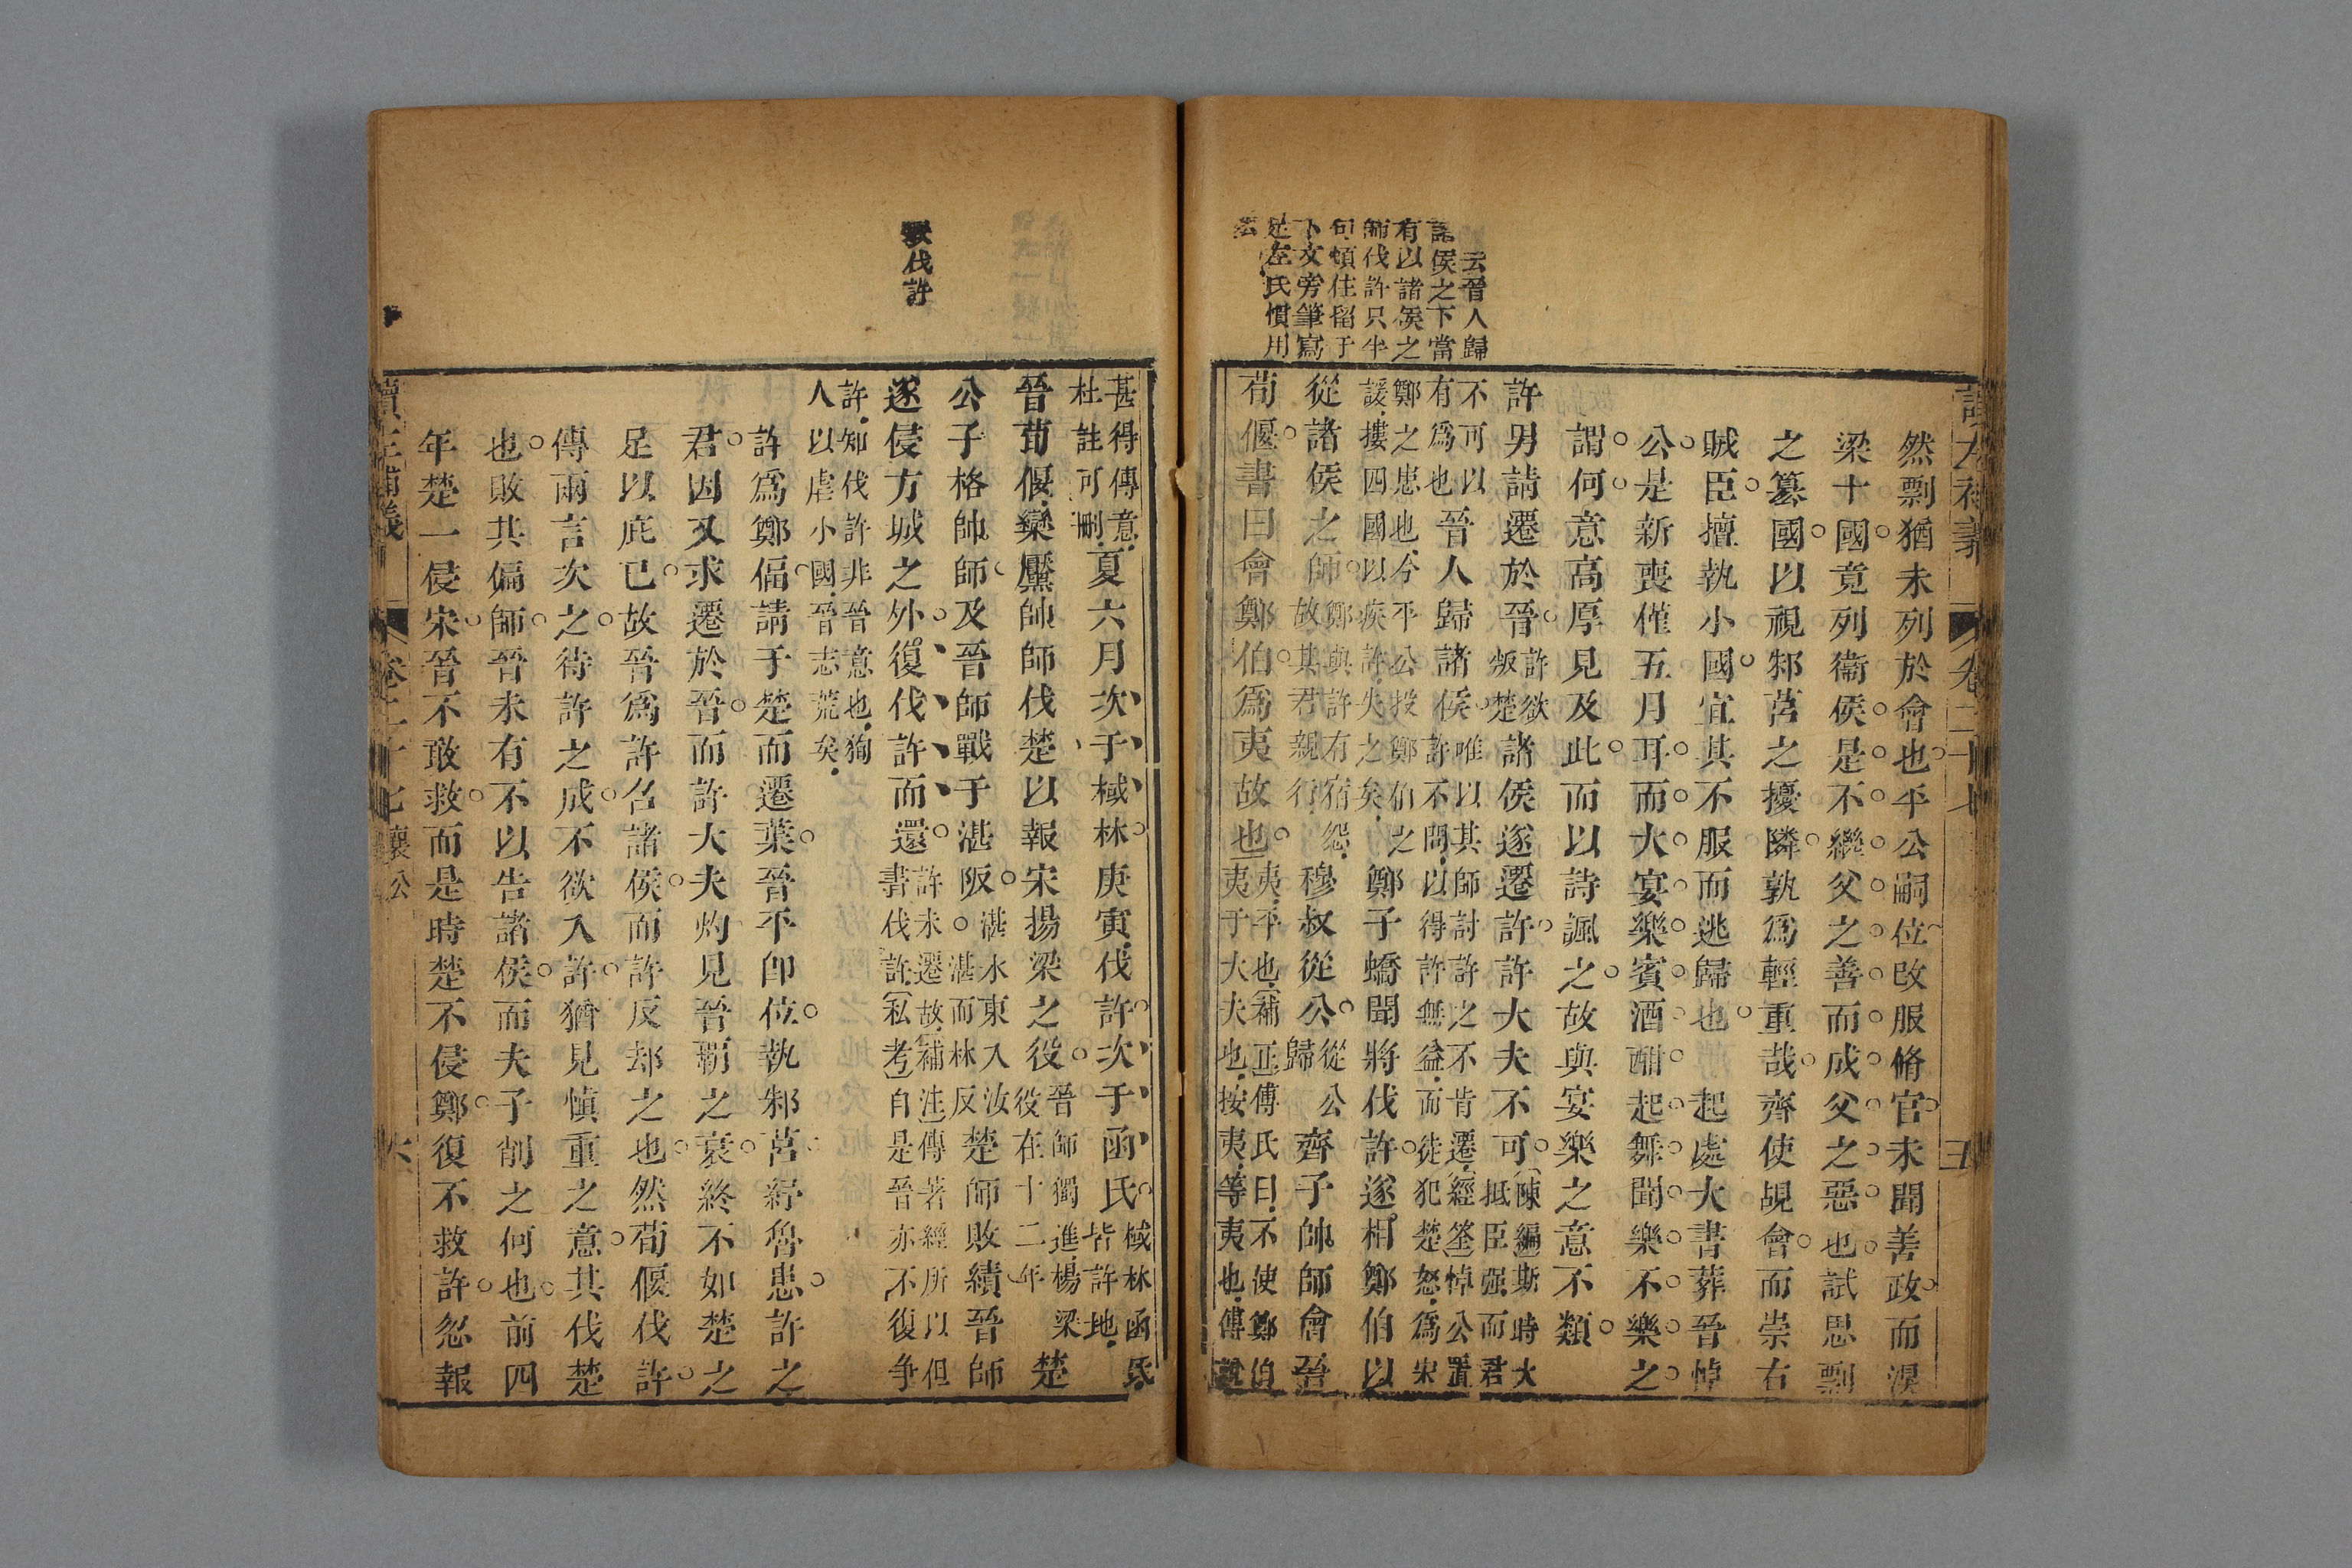 云晉人歸
諸侯之下當
有以諸侯之
師伐許只半
句頓住留于
下文旁筆寫
是左氏慣用
法
讀左補義 卷二十七 五
然剽猶未列於會也平公嗣位改服脩官未聞善政而湨
梁十國竟列衞侯是不繼父之善而成父之惡也試思剽
之簒國以視邾莒之擾隣孰爲輕重哉齊使覘會而崇右
賊臣擅執小國宜其不服而逃歸也 起處大書葬晉悼
公是新喪僅五月耳而大宴樂賓酒酣起舞聞樂不樂之
謂何意高厚見及此而以詩諷之故與宴樂之意不類
許男請遷於晉許欲叛楚諸侯遂遷許許大夫不可陳編斯時大抵臣强而君
不可以有爲也晉人歸諸侯唯以其師討許之不肯遷經筌悼公置許不問以得許無益而徒犯楚怒爲宋
鄭之患也今平公投鄭伯之諼摟四國以疾許失之矣鄭子蟜聞將伐許遂相鄭伯以
從諸侯之師鄭與許有宿怨故其君親行穆叔從公從公歸齊子帥師會晉
荀偃書曰會鄭伯爲夷故也夷平也補正傅氏曰不使鄭伯夷于大夫也按夷等夷也傳說
甚得傳意杜註可刪夏六月次于棫林庚寅伐許次于函氏棫林函氏皆許地
晉荀偃欒黶帥師伐楚以報宋揚梁之役晉師獨進楊梁役在十二年楚
公子格帥師及晉師戰于湛阪湛水東入汝湛而林反楚師敗績晉師
遂侵方城之外復伐許而還許未遷故補注傳著經所以但書伐許私考自是晉亦不復爭
許知伐許非晉意也狥人以虐小國晉志荒矣
許爲鄭偪請于楚而遷葉晉平卽位執邾莒紓魯患許之
君因又求遷於晉而許大夫灼見晉霸之衰終不如楚之
足以庇已故晉爲許召諸侯而許反却之也然荀偃伐許
傳兩言次之待許之成不欲入許猶見愼重之意其伐楚
也敗其偏師晉未有不以告諸侯而夫子削之何也前四
年楚一侵宋晉不敢救而是時楚不侵鄭復不救許忽報
讀左補義 卷二十七 襄公 六
伐許